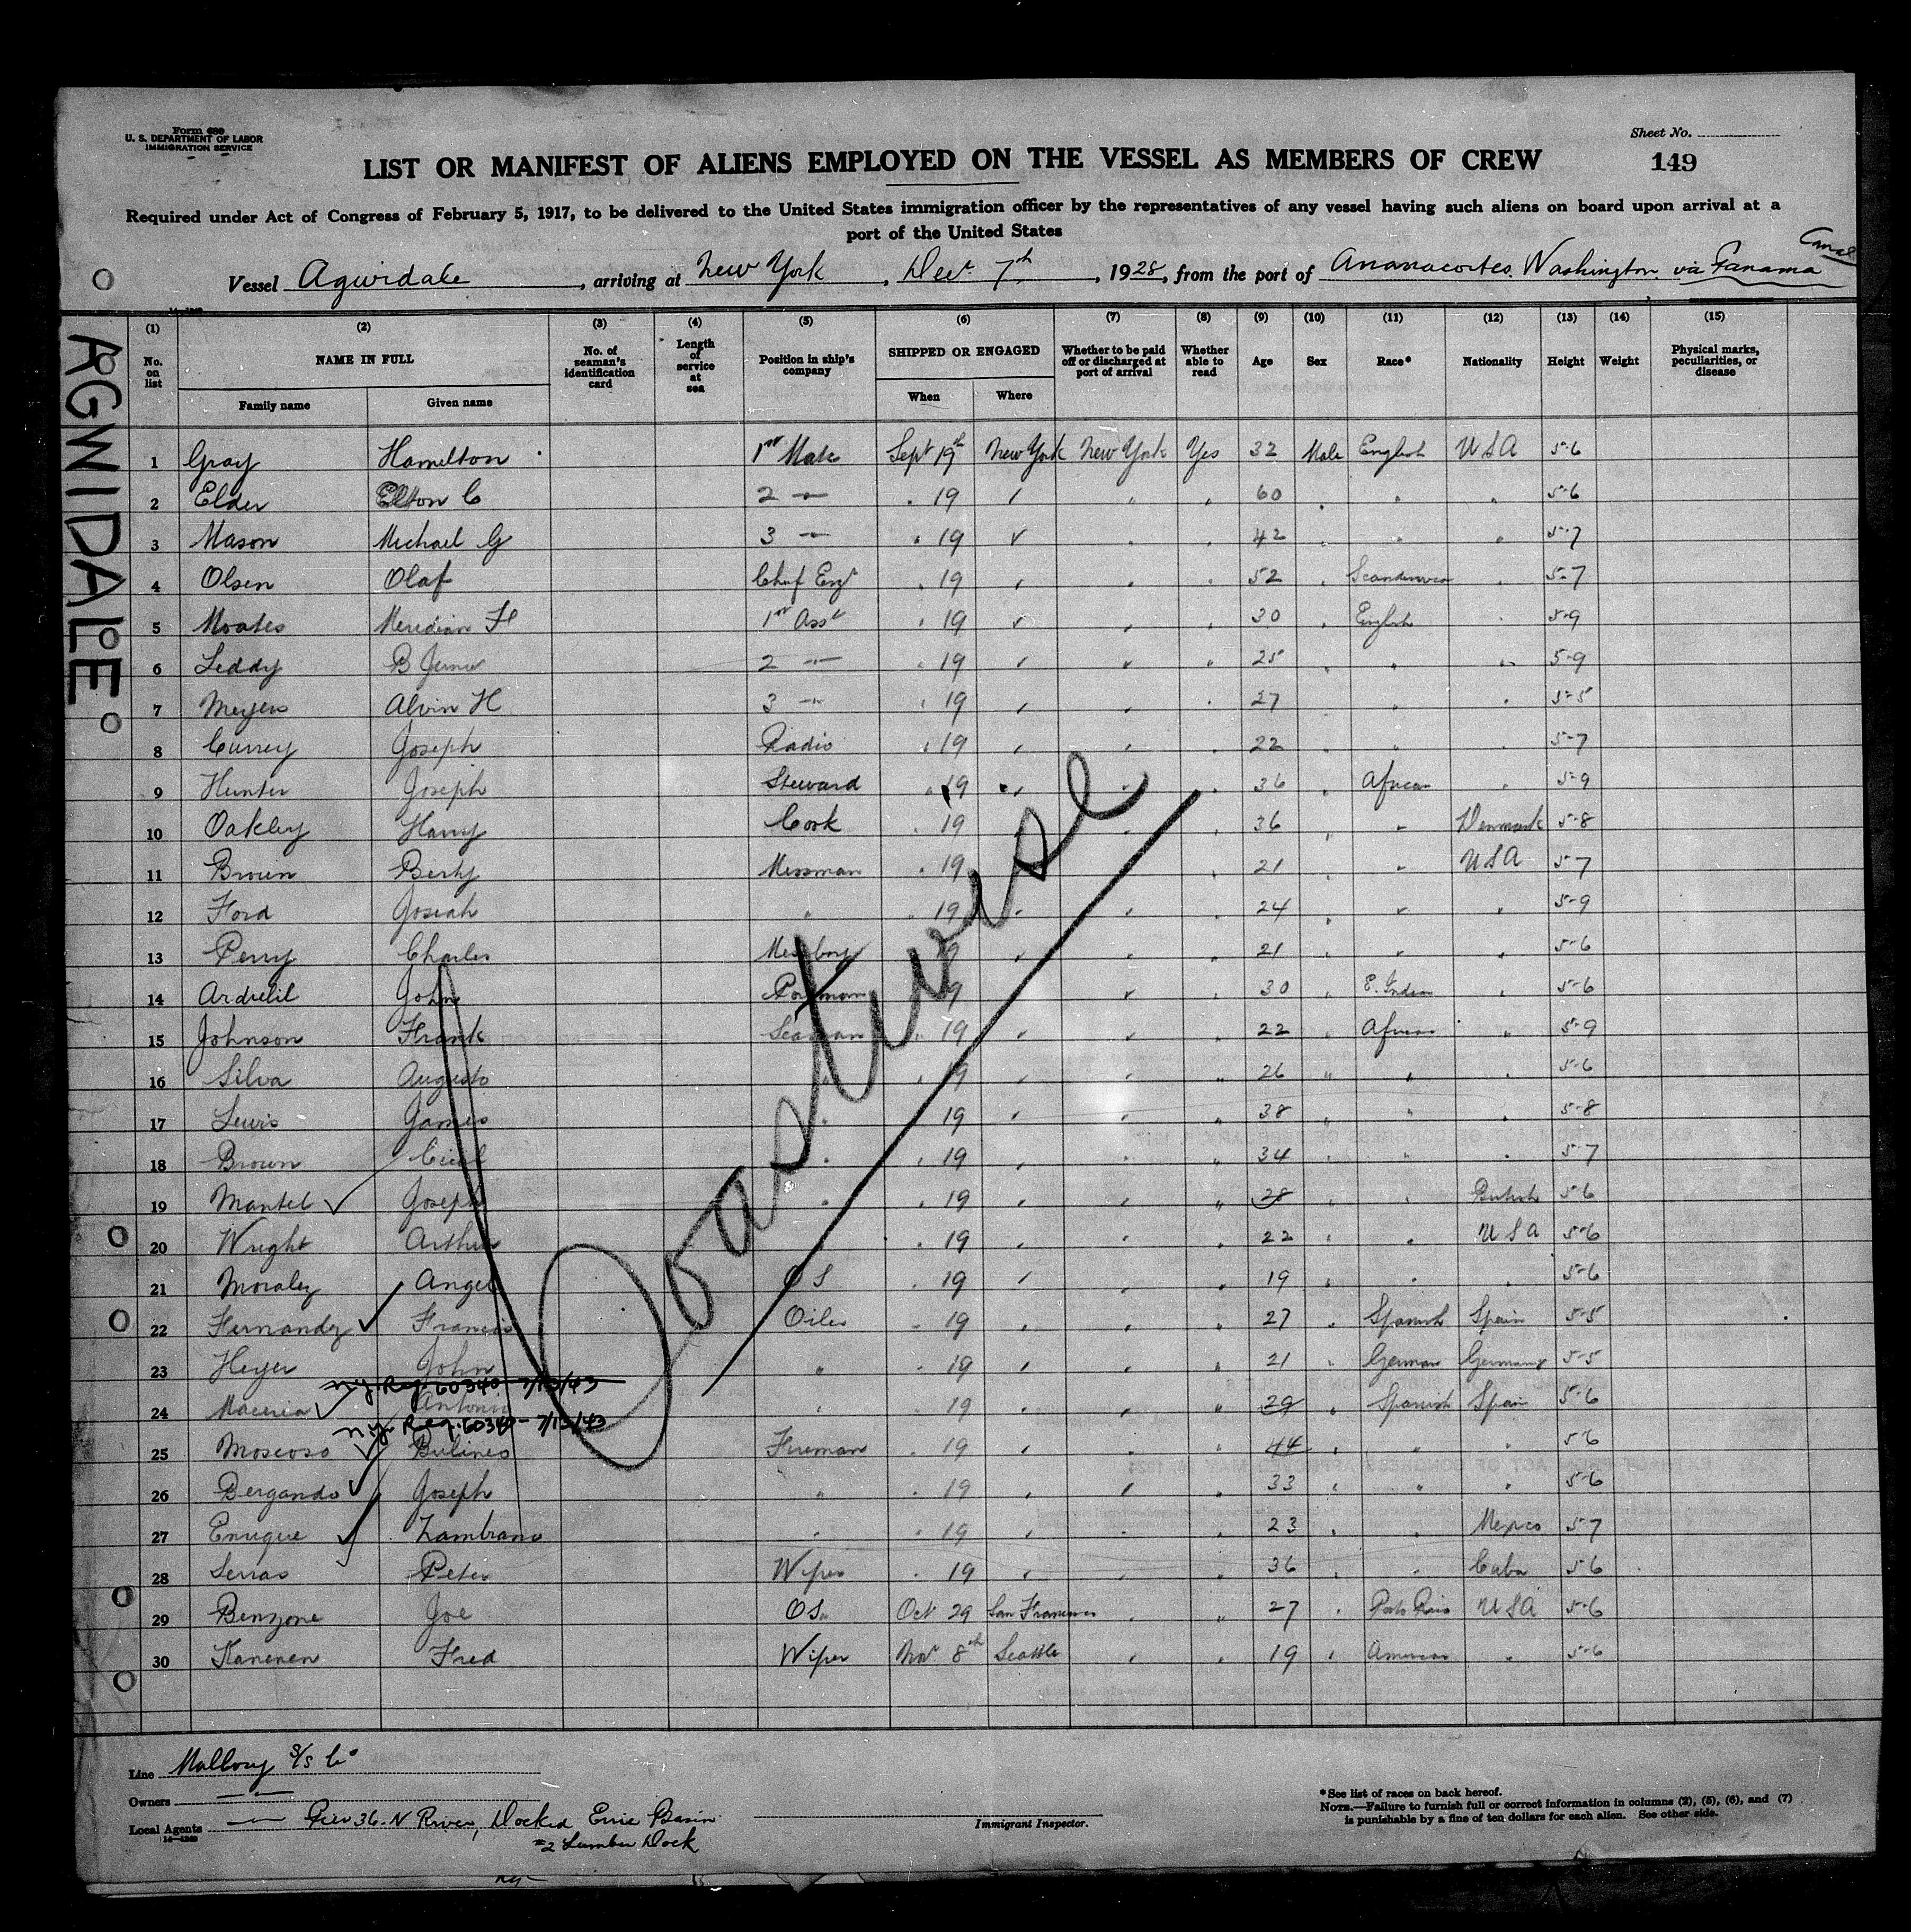 Form 689
U. S. DEPARTMENT OF LABOR
IMMIGRATION SERVICE
Sheet No.
149
LIST OR MANIFEST OF ALIENS EMPLOYED ON THE VESSEL AS MEMBERS OF CREW
Required under Act of Congress of February 5, 1917, to be delivered to the United States immigration officer by the representatives of any vessel having such aliens on board upon arrival at a
port of the United States
Vessel Agwidale, arriving at New York, Dec. 7th, 1928, from the port of Ananacortes Washington via Panama Canal
ARGWIDALE
(1) (2) (3) (4) (5) (6) (7) (8) (9) (10) (11) (12) (13) (14) (15)
No. on list NAME IN FULL No. of seaman's identification card Length of service at sea Position in ship's company SHIPPED OR ENGAGED Whether to be paid off or discharged at port of arrival Whether able to read Age Sex Race* Nationality Height Weight Physical marks, peculiarities, or disease
Family name Given name When Where
1 Gray Hamilton 1st Mate Sept 19th New York New York Yes 32 Male English USA 5-6
2 Elder Elton C 2 " " 19 " " " 60 " " " 5-6
3 Mason Michael G 3 " " 19 " " " 42 " " " 5-7
4 Olsen Olaf Chief Engr " 19 " " " 52 " Scandinavian " 5-7
5 Moates Meridian H 1st Asst " 19 " " " 30 " English " 5-9
6 Leddy B June 2 " " 19 " " " 25 " " " 5-9
7 Meyers Alvin H 3 " " 19 " " " 27 " " 5-5
8 Currey Joseph Radio " 19 " " " 22 " " " 5-7
9 Hunter Joseph Steward " 19 " " " 36 " African " 5-9
10 Oakley Harry Cook " 19 " " 36 " " Denmark 5-8
11 Brown Berty Messman " 19 " 21 " " USA 5-7
12 Ford Josiah " " 19 " " " 24 " " " 5-9
13 Perry Charles Messboy 19 " " " 21 " " " 5-6
14 John 19 " " 30 " E. Indian " 5-6
15 Johnson Frank Seaman " 19 " " " 22 " African " 5-9
16 Silva Augusto " " 19 " " " 26 " " " 5-6
17 Lewis James " 19 " " " 38 " " " 5-8
18 Brown Cecil " " 19 " " " 34 " " " 5-7
19 Mantel Joseph " " 19 " " " 28 " " British 5-6
20 Wright Arthur " 19 " " " 22 " " USA 5-6
21 Moralez Angel OS " 19 " " " 19 " " " 5-6
22 Fernandz Francis Oiler " 19 " " " 27 " Spanish Spain 5-5
23 Heyer John " " 19 " " " 21 " German Germany 5-5
n.y. Req. 60340 - 7/13/43
24 Maceria Antonio " " 19 " " " 29 " Spanish Spain 5-6
n.y. Req. 60340 - 7/13/43
25 Moscoso Fireman " 19 " " " 44 " " " 5-6
26 Bergando Joseph " " 19 " " " 33 " " " 5-6
27 Enrique Zambrano " " 19 " " " 23 " " Mexico 5-7
28 Serras Peter Wiper " 19 " " " 36 " " Cuba 5-6
29 Benzone Joe OS Oct 29 San Francisco " " 27 " Porto Rico USA 5-6
30 Kanenen Fred Wiper Nov 8th Seattle " " 19 " American " 5-6
Coastwise
Line Mallory S/S Co
Owners — " —
Local Agents — " — Pier 36. N River, Docked Erie Basin
#2 Lumber Dock
14—1240
Immigrant Inspector.
*See list of races on back hereof.
NOTE.—Failure to furnish full or correct information in columns (2), (5), (6), and (7)
is punishable by a fine of ten dollars for each alien. See other side.